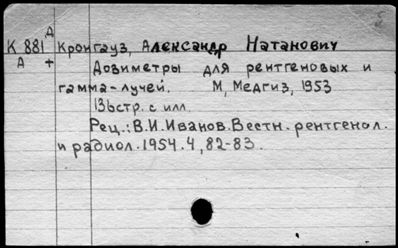 Д
К 881 Кронгауз, Александр Натанович
А +
Дозиметры для рентгеновых и
гамма-лучей. М, Медгиз, 1953
136стр. с илл.
Рец.: В.И.Иванов. Вестн. рентгенол.
и радиол. 1954. 4, 82-83.